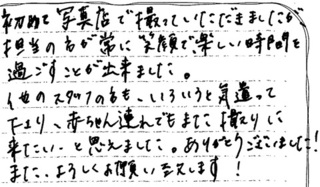 初めて写真店で撮っていただきましたが
担当の方が常に笑顔で楽しい時間を
過ごすことが出来ました。
他のスタッフの方も、いろいろと気遣って
下さり、赤ちゃん連れでもまた撮りに
来たい…と思えました。ありがとうございました!
また、よろしくお願い致します!